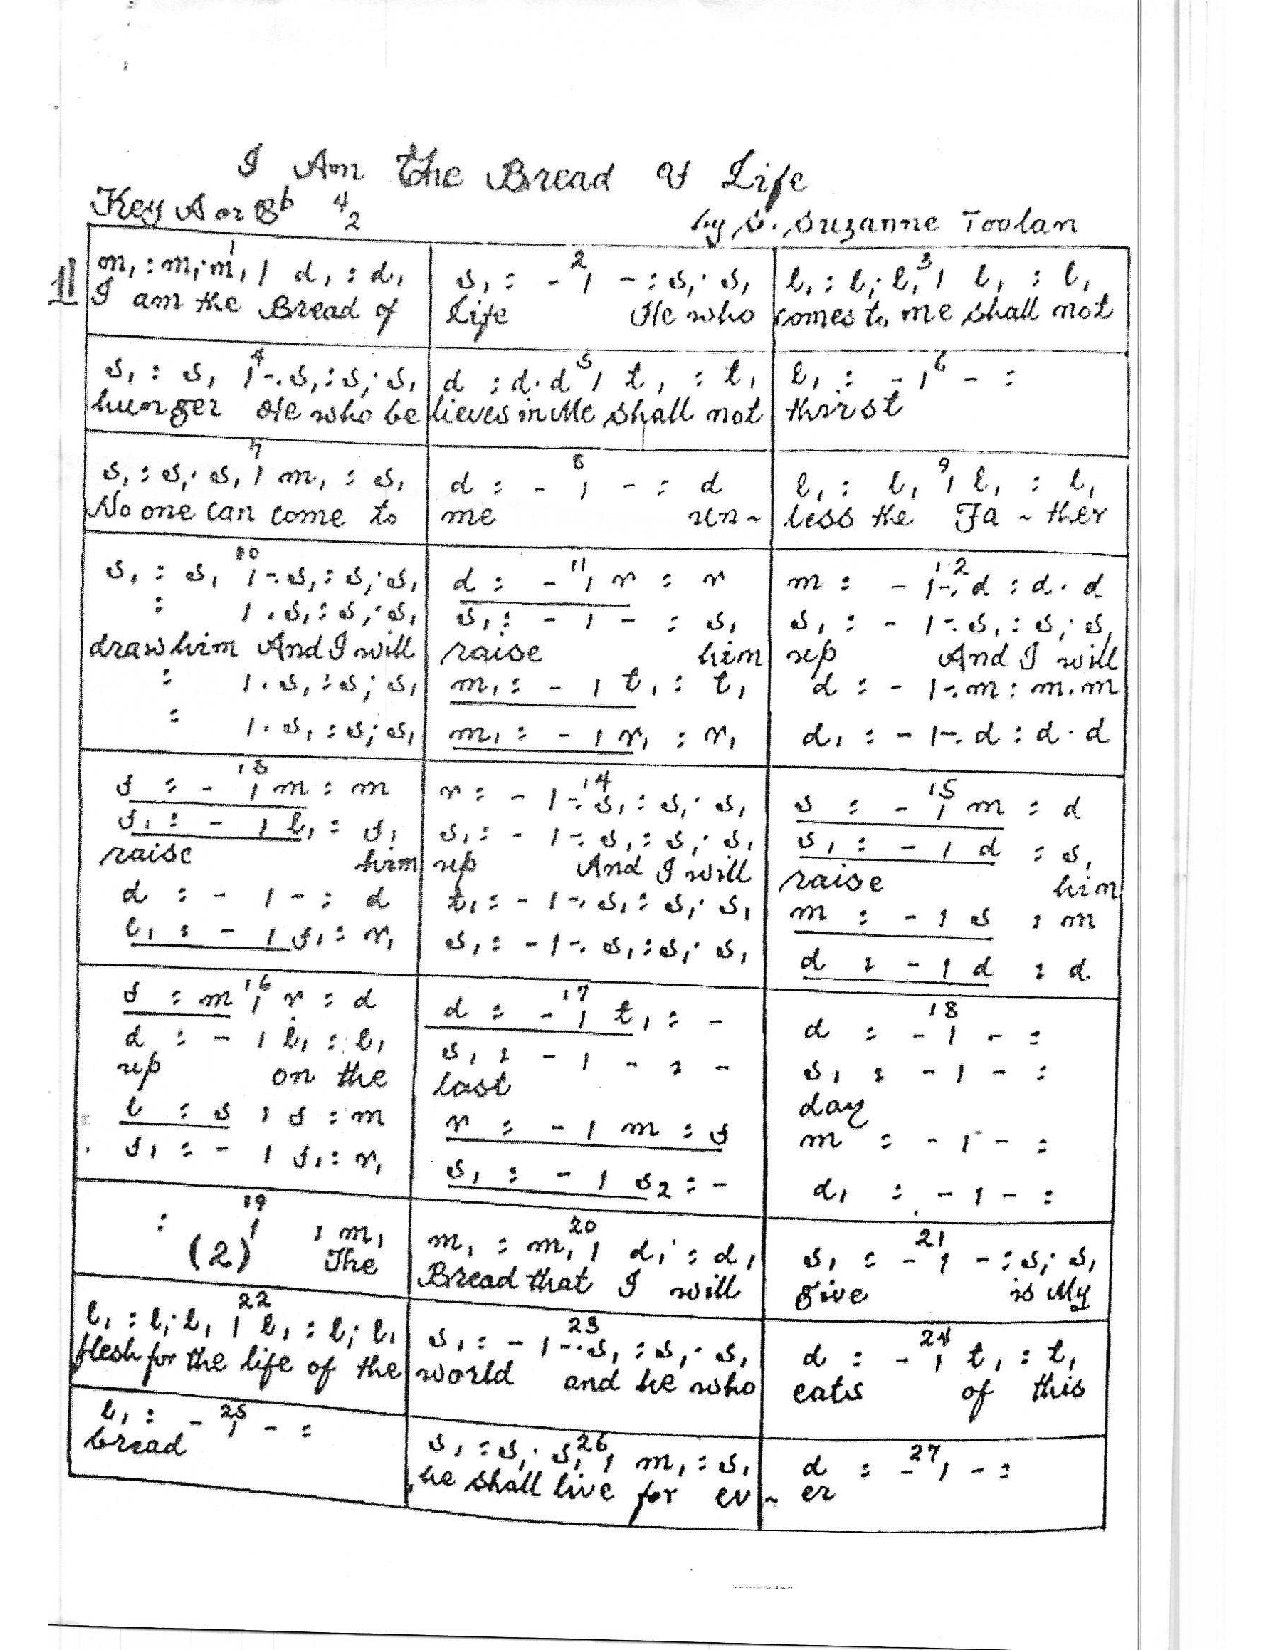 I Am The Bread of Life
Key A or Bb 4/2
by S. Suzanne Toolan
1
m, : m,. m, | d, : d,
I am the Bread of
2
s, : - | - : s,. s,
Life He who
3
l, : l,. l, | l, : l,
comes to me shall not
4
s, : s, | -. s, : s,. s,
hunger He who be
5
d : d. d | t, : t,
lieves in Me shall not
6
l, : - | - :
thirst
7
s, : s,. s, | m, : s,
No one can come to
8
d : - | - : d
me un-
9
l, : l, | l, : l,
less the Fa - ther
10
s, : s, | -. s, : s,. s,
: | . s, : s,. s,
draw him And I will
: | . s, : s,. s,
: | . s, : s,. s,
11
d : - | r : r
s, : - | - : s,
raise him
m, : - | t, : t,
m, : - | r, : r,
12
m : - | -. d : d. d
s, : - | -. s, : s,. s,
up And I will
d : - | -. m : m. m
d, : - | -. d : d. d
13
f : - | m : m
f, : - | l, : f,
raise him
d : - | - : d
l, : - | f, : r,
14
r : - | -. s, : s,. s,
s, : - | -. s, : s,. s,
up And I will
t, : - | -. s, : s,. s,
s, : - | -. s, : s,. s,
15
s : - | m : d
s, : - | d : s,
raise him
m : - | s : m
d : - | d : d
16
f : m | r : d
d : - | l, : l,
up on the
l : s | f : m
f, : - | f, : r,
17
d : - | t, : -
s, : - | - : -
last
r : - | m : f
s, : - | s2 : -
18
d : - | - :
s, : - | - :
day
m : - | - :
d, : - | - :
19
: | : m,
(2) The
20
m, : m, | d, : d,
Bread that I will
21
s, : - | - : s,. s,
give is My
22
l, : l,. l, | l, : l,. l,
flesh for the life of the
23
s, : - | -. s, : s,. s,
world and he who
24
d : - | t, : t,
eats of this
25
l, : - | - :
bread
26
s, : s,. s, | m, : s,
he shall live for ev -
27
d : - | - :
er